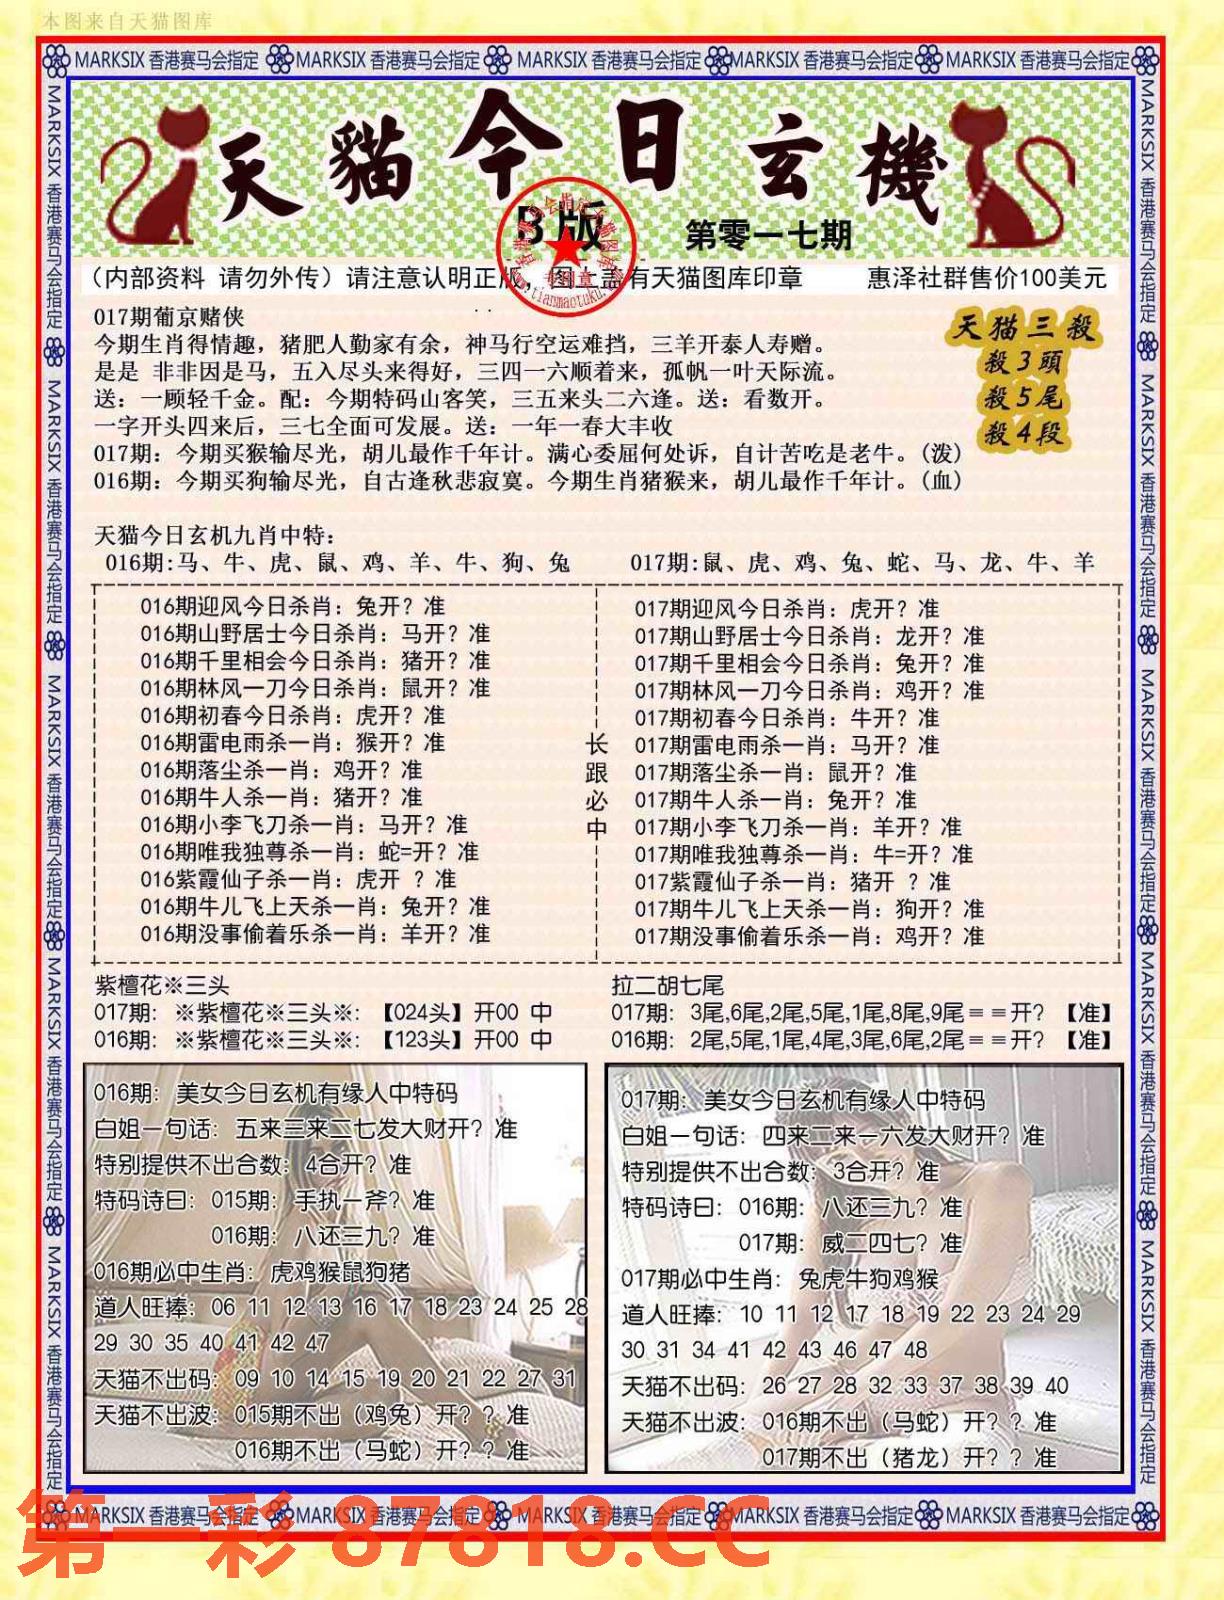 本图来自天猫图库
MARKSIX 香港赛马会指定 MARKSIX 香港赛马会指定 MARKSIX 香港赛马会指定 MARKSIX 香港赛马会指定 MARKSIX 香港赛马会指定
天貓今日玄機
B版
第零一七期
(内部资料 请勿外传) 请注意认明正版，图上盖有天猫图库印章 惠泽社群售价100美元
017期葡京赌侠
今期生肖得情趣，猪肥人勤家有余，神马行空运难挡，三羊开泰人寿赠。
是是 非非因是马，五入尽头来得好，三四一六顺着来，孤帆一叶天际流。
送：一顾轻千金。配：今期特码山客笑，三五来头二六逢。送：看数开。
一字开头四来后，三七全面可发展。送：一年一春大丰收
017期：今期买猴输尽光，胡儿最作千年计。满心委屈何处诉，自计苦吃是老牛。(泼)
016期：今期买狗输尽光，自古逢秋悲寂寞。今期生肖猪猴来，胡儿最作千年计。(血)
天猫三殺
殺3頭
殺5尾
殺4段
天猫今日玄机九肖中特：
016期:马、牛、虎、鼠、鸡、羊、牛、狗、兔
017期:鼠、虎、鸡、兔、蛇、马、龙、牛、羊
016期迎风今日杀肖：兔开？准
016期山野居士今日杀肖：马开？准
016期千里相会今日杀肖：猪开？准
016期林风一刀今日杀肖：鼠开？准
016期初春今日杀肖：虎开？准
016期雷电雨杀一肖：猴开？准
016期落尘杀一肖：鸡开？准
016期牛人杀一肖：猪开？准
016期小李飞刀杀一肖：马开？准
016期唯我独尊杀一肖：蛇=开？准
016紫霞仙子杀一肖：虎开 ？准
016期牛儿飞上天杀一肖：兔开？准
016期没事偷着乐杀一肖：羊开？准
长跟必中
017期迎风今日杀肖：虎开？准
017期山野居士今日杀肖：龙开？准
017期千里相会今日杀肖：兔开？准
017期林风一刀今日杀肖：鸡开？准
017期初春今日杀肖：牛开？准
017期雷电雨杀一肖：马开？准
017期落尘杀一肖：鼠开？准
017期牛人杀一肖：兔开？准
017期小李飞刀杀一肖：羊开？准
017期唯我独尊杀一肖：牛=开？准
017紫霞仙子杀一肖：猪开 ？准
017期牛儿飞上天杀一肖：狗开？准
017期没事偷着乐杀一肖：鸡开？准
紫檀花※三头
017期：※紫檀花※三头※:【024头】开00 中
016期：※紫檀花※三头※:【123头】开00 中
拉二胡七尾
017期：3尾,6尾,2尾,5尾,1尾,8尾,9尾＝＝开？【准】
016期：2尾,5尾,1尾,4尾,3尾,6尾,2尾＝＝开？【准】
016期：美女今日玄机有缘人中特码
白姐一句话：五来三来二七发大财开？准
特别提供不出合数：4合开？准
特码诗曰：015期：手执一斧？准
016期：八还三九？准
016期必中生肖：虎鸡猴鼠狗猪
道人旺捧：06 11 12 13 16 17 18 23 24 25 28
29 30 35 40 41 42 47
天猫不出码：09 10 14 15 19 20 21 22 27 31
天猫不出波：015期不出（鸡兔）开？？准
016期不出（马蛇）开？？准
017期：美女今日玄机有缘人中特码
白姐一句话：四来二来一六发大财开？准
特别提供不出合数：3合开？准
特码诗曰：016期：八还三九？准
017期：威二四七？准
017期必中生肖：兔虎牛狗鸡猴
道人旺捧：10 11 12 17 18 19 22 23 24 29
30 31 34 41 42 43 46 47 48
天猫不出码：26 27 28 32 33 37 38 39 40
天猫不出波：016期不出（马蛇）开？？准
017期不出（猪龙）开？？准
MARKSIX 香港赛马会指定 MARKSIX 香港赛马会指定 MARKSIX 香港赛马会指定 MARKSIX 香港赛马会指定 MARKSIX 香港赛马会指定
第一彩 87818.CC